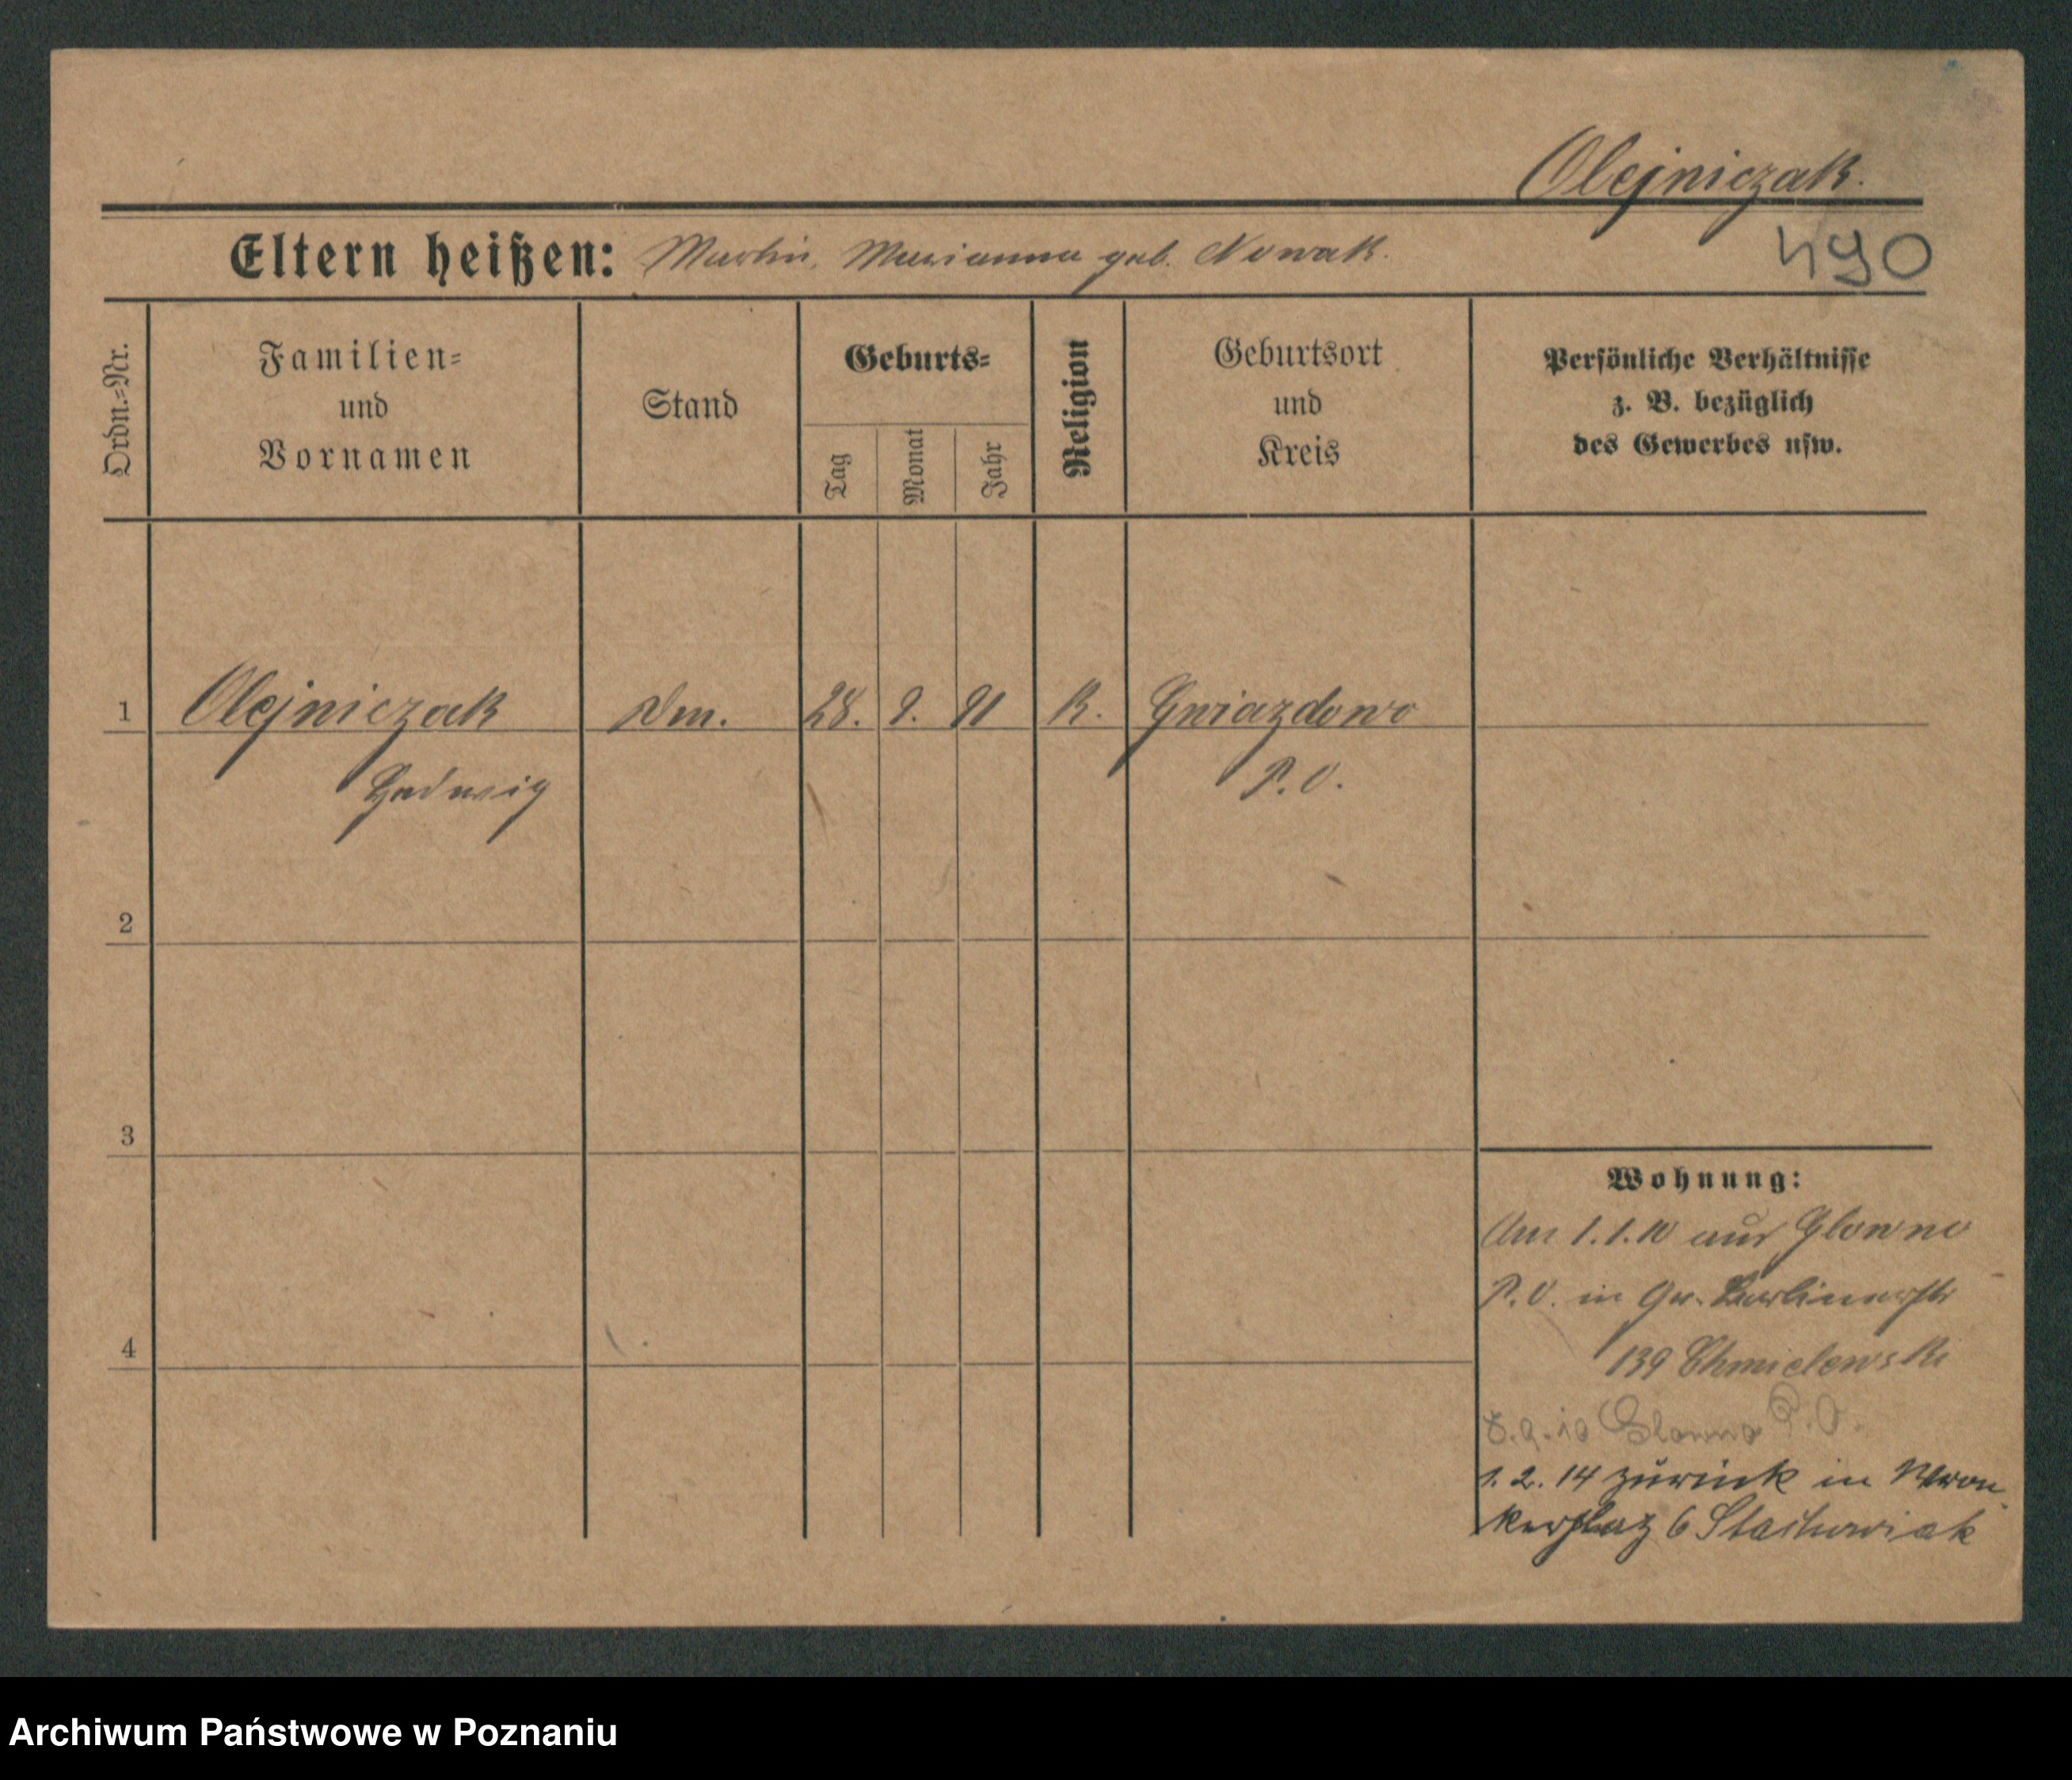 Olejniczak.
Eltern heißen: Martin, Marianna geb. Nowak.
490
Ordn.=Nr.
Familien=
und
Vornamen
Stand
Geburts=
Tag
Monat
Jahr
Religion
Geburtsort
und
Kreis
Persönliche Verhältnisse
z. B. bezüglich
des Gewerbes usw.
1 Olejniczak 28. 9. 91 K. Gwiazdowo
Hedwig P. O.
2
3
4
Wohnung:
Am 1.1.10 aus Glowno
P. O. in Gr. Berlinerstr
139 Chmielewski
8.9.10 Glowno P. O.
1. 2. 14 zurück in Wron
kerplatz 6 Stachowiak
Archiwum Państwowe w Poznaniu